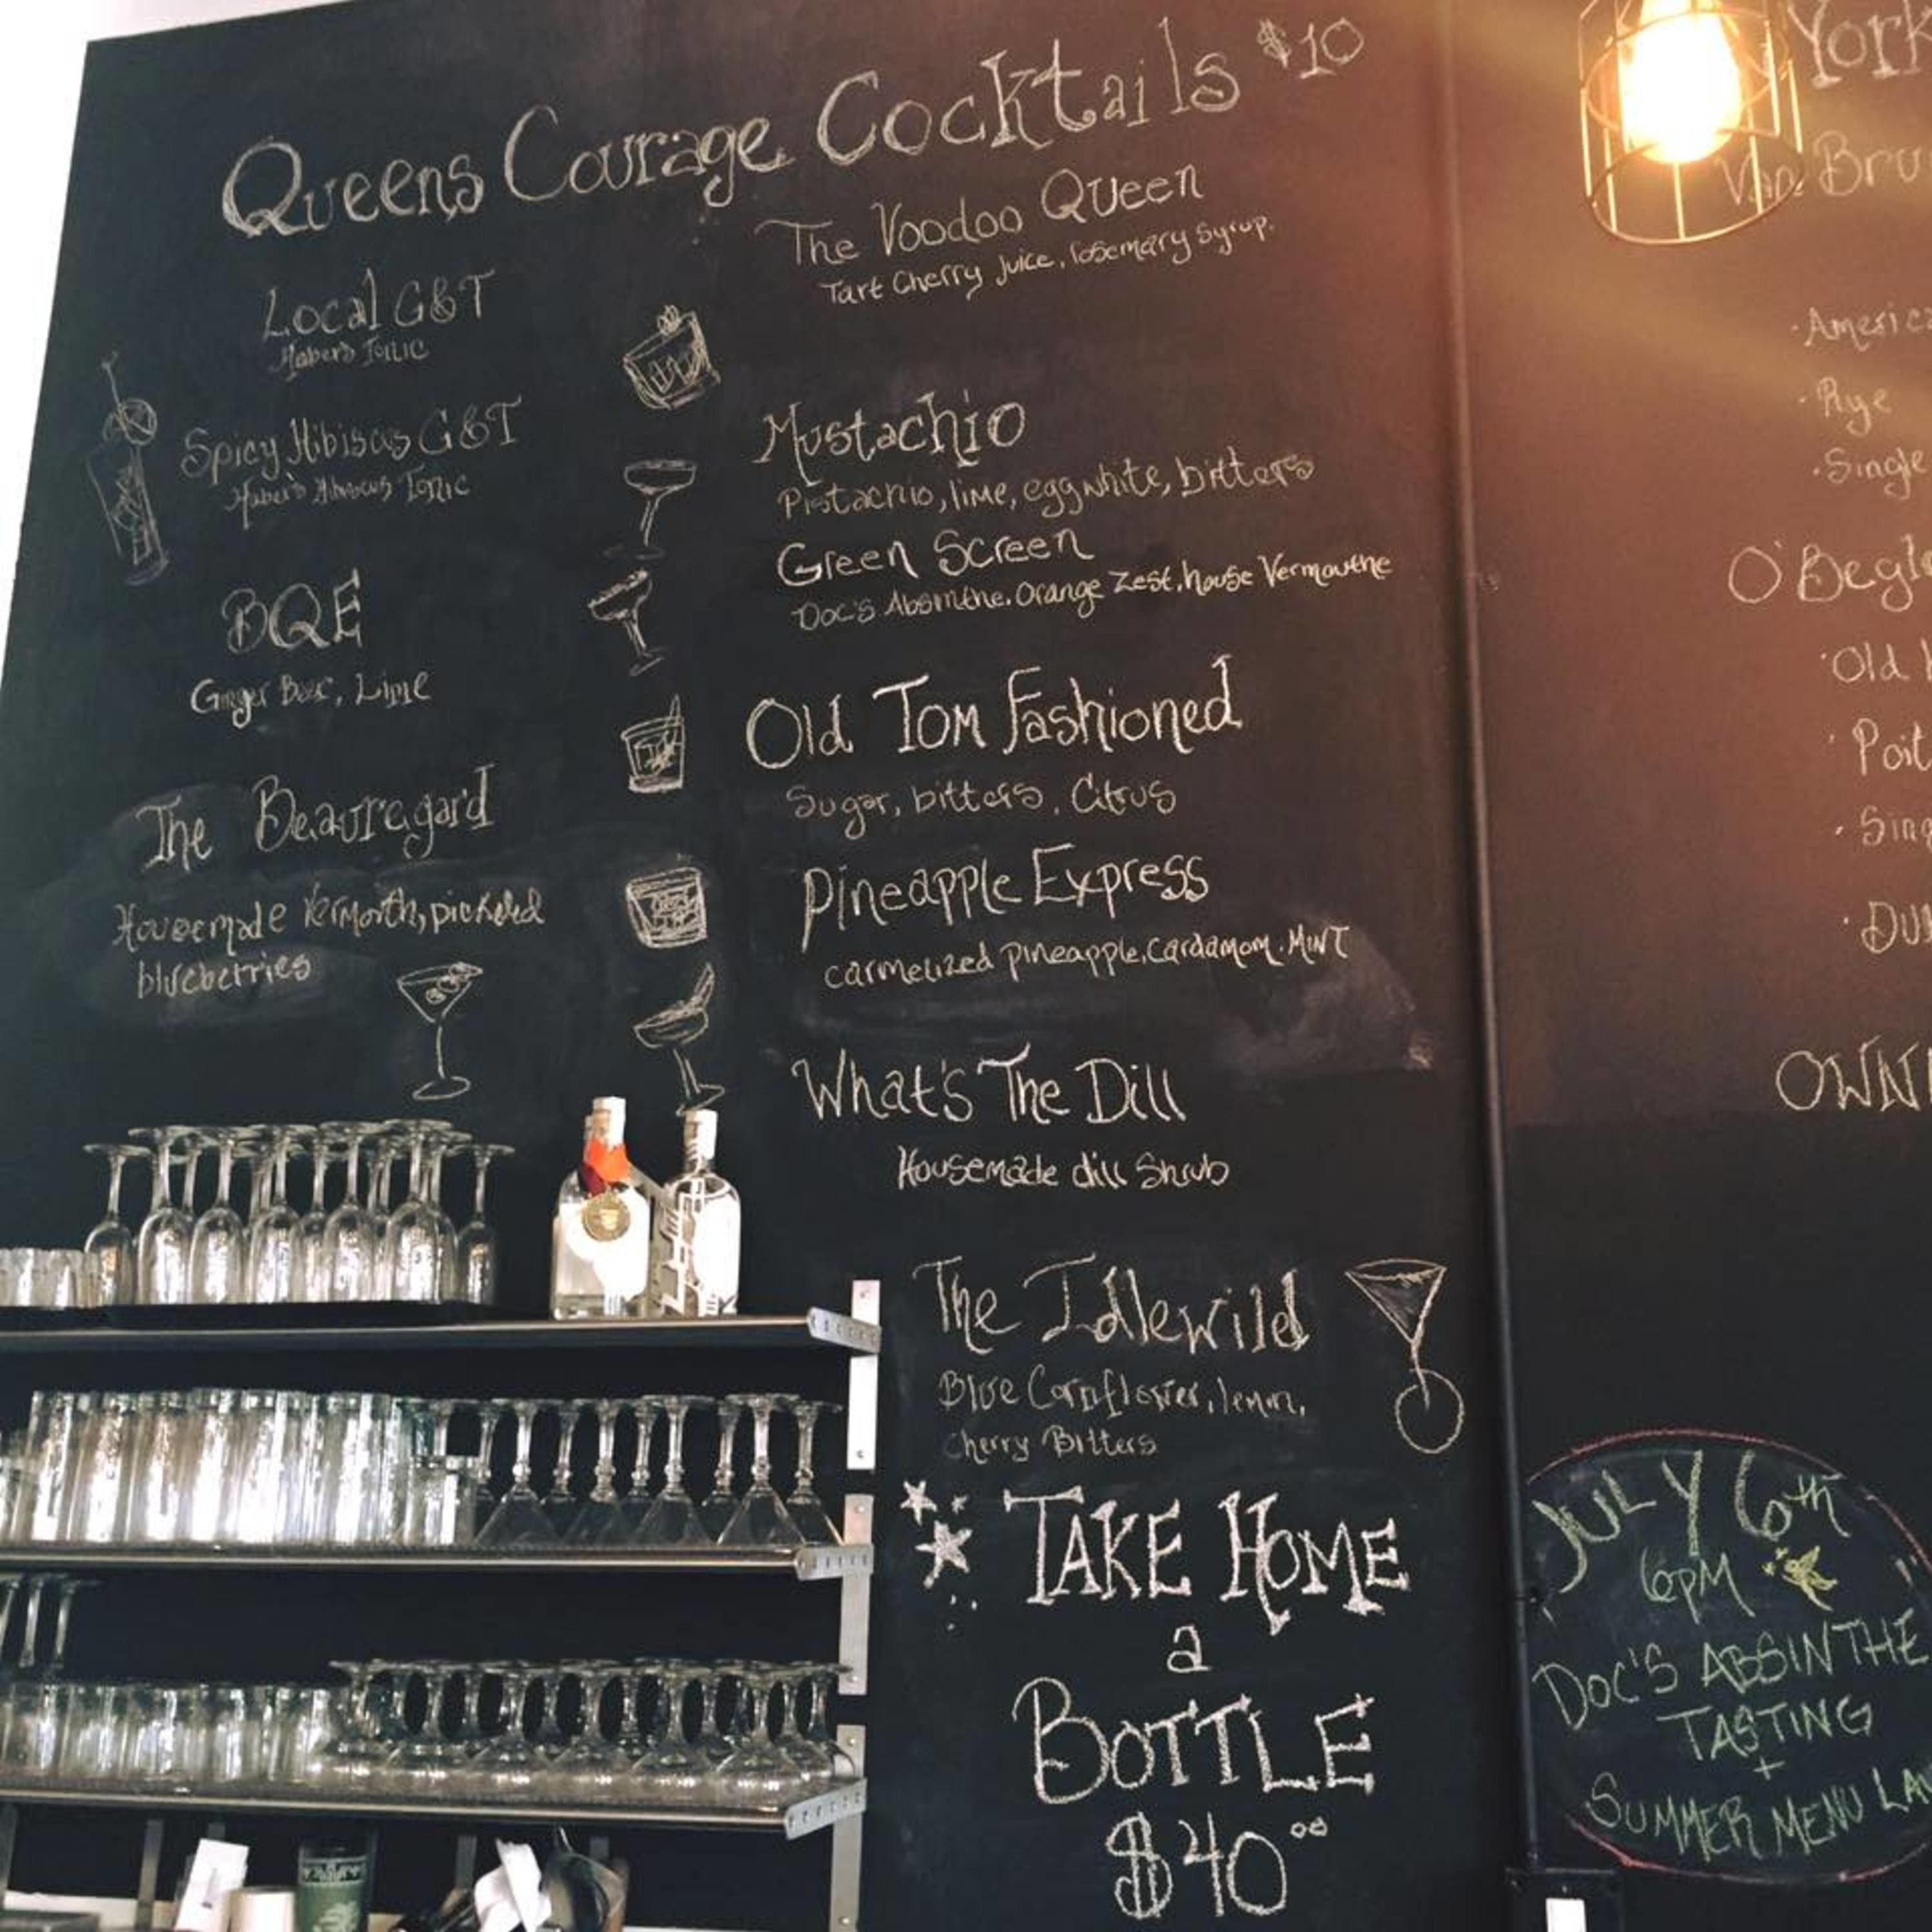 Queens Courage Cocktails $10
Local G&T
Haber's Tonic
Spicy Hibiscus G&T
Haber's Hibiscus Tonic
BQE
Ginger Beer, Lime
The Beauregard
Housemade Vermouth, pickled
blueberries
The Voodoo Queen
Tart Cherry juice, rosemary syrup.
Mustachio
Pistachio, lime, egg white, bitters
Green Screen
Doc's Absinthe. Orange Zest, house Vermouthe
Old Tom Fashioned
Sugar, bitters, Citrus
Pineapple Express
carmelized pineapple, Cardamom. MINT
What's The Dill
Housemade dill Shrub
The Idlewild
Blue Cornflower, lemon,
Cherry Bitters
TAKE HOME
a
BOTTLE
$40.00
York
Van Bru
·America
·Rye
·Single
O'Begl
·Old
·Poit
·Sing
·Du
OWN
JULY 6th
6pm
DOC'S ABSINTHE
TASTING
+
SUMMER MENU LA